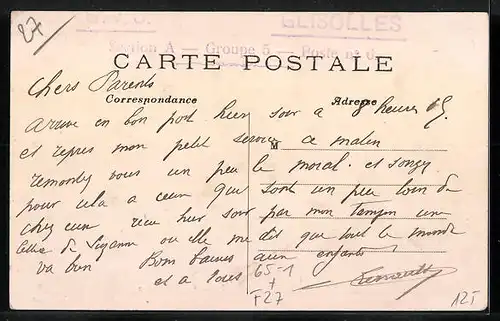 27
G.V.C. GLISOLLES
Section A — Groupe 5 — Poste n° 6
CARTE POSTALE
Correspondance Adresse
M
Chers Parents
arrive en bon port hier soir a 8 heures 45
et repris mon petit service a matin
remontez vous un peu le moral. et songez
pour cela a ceux qui sont un peu loin de
chez eux recu hier soir par mon tampon une
lettre de Suzanne ou elle me dit que tout le monde
va bien Bons baisers aux enfants
et a tous
65-1
+
F27
12F